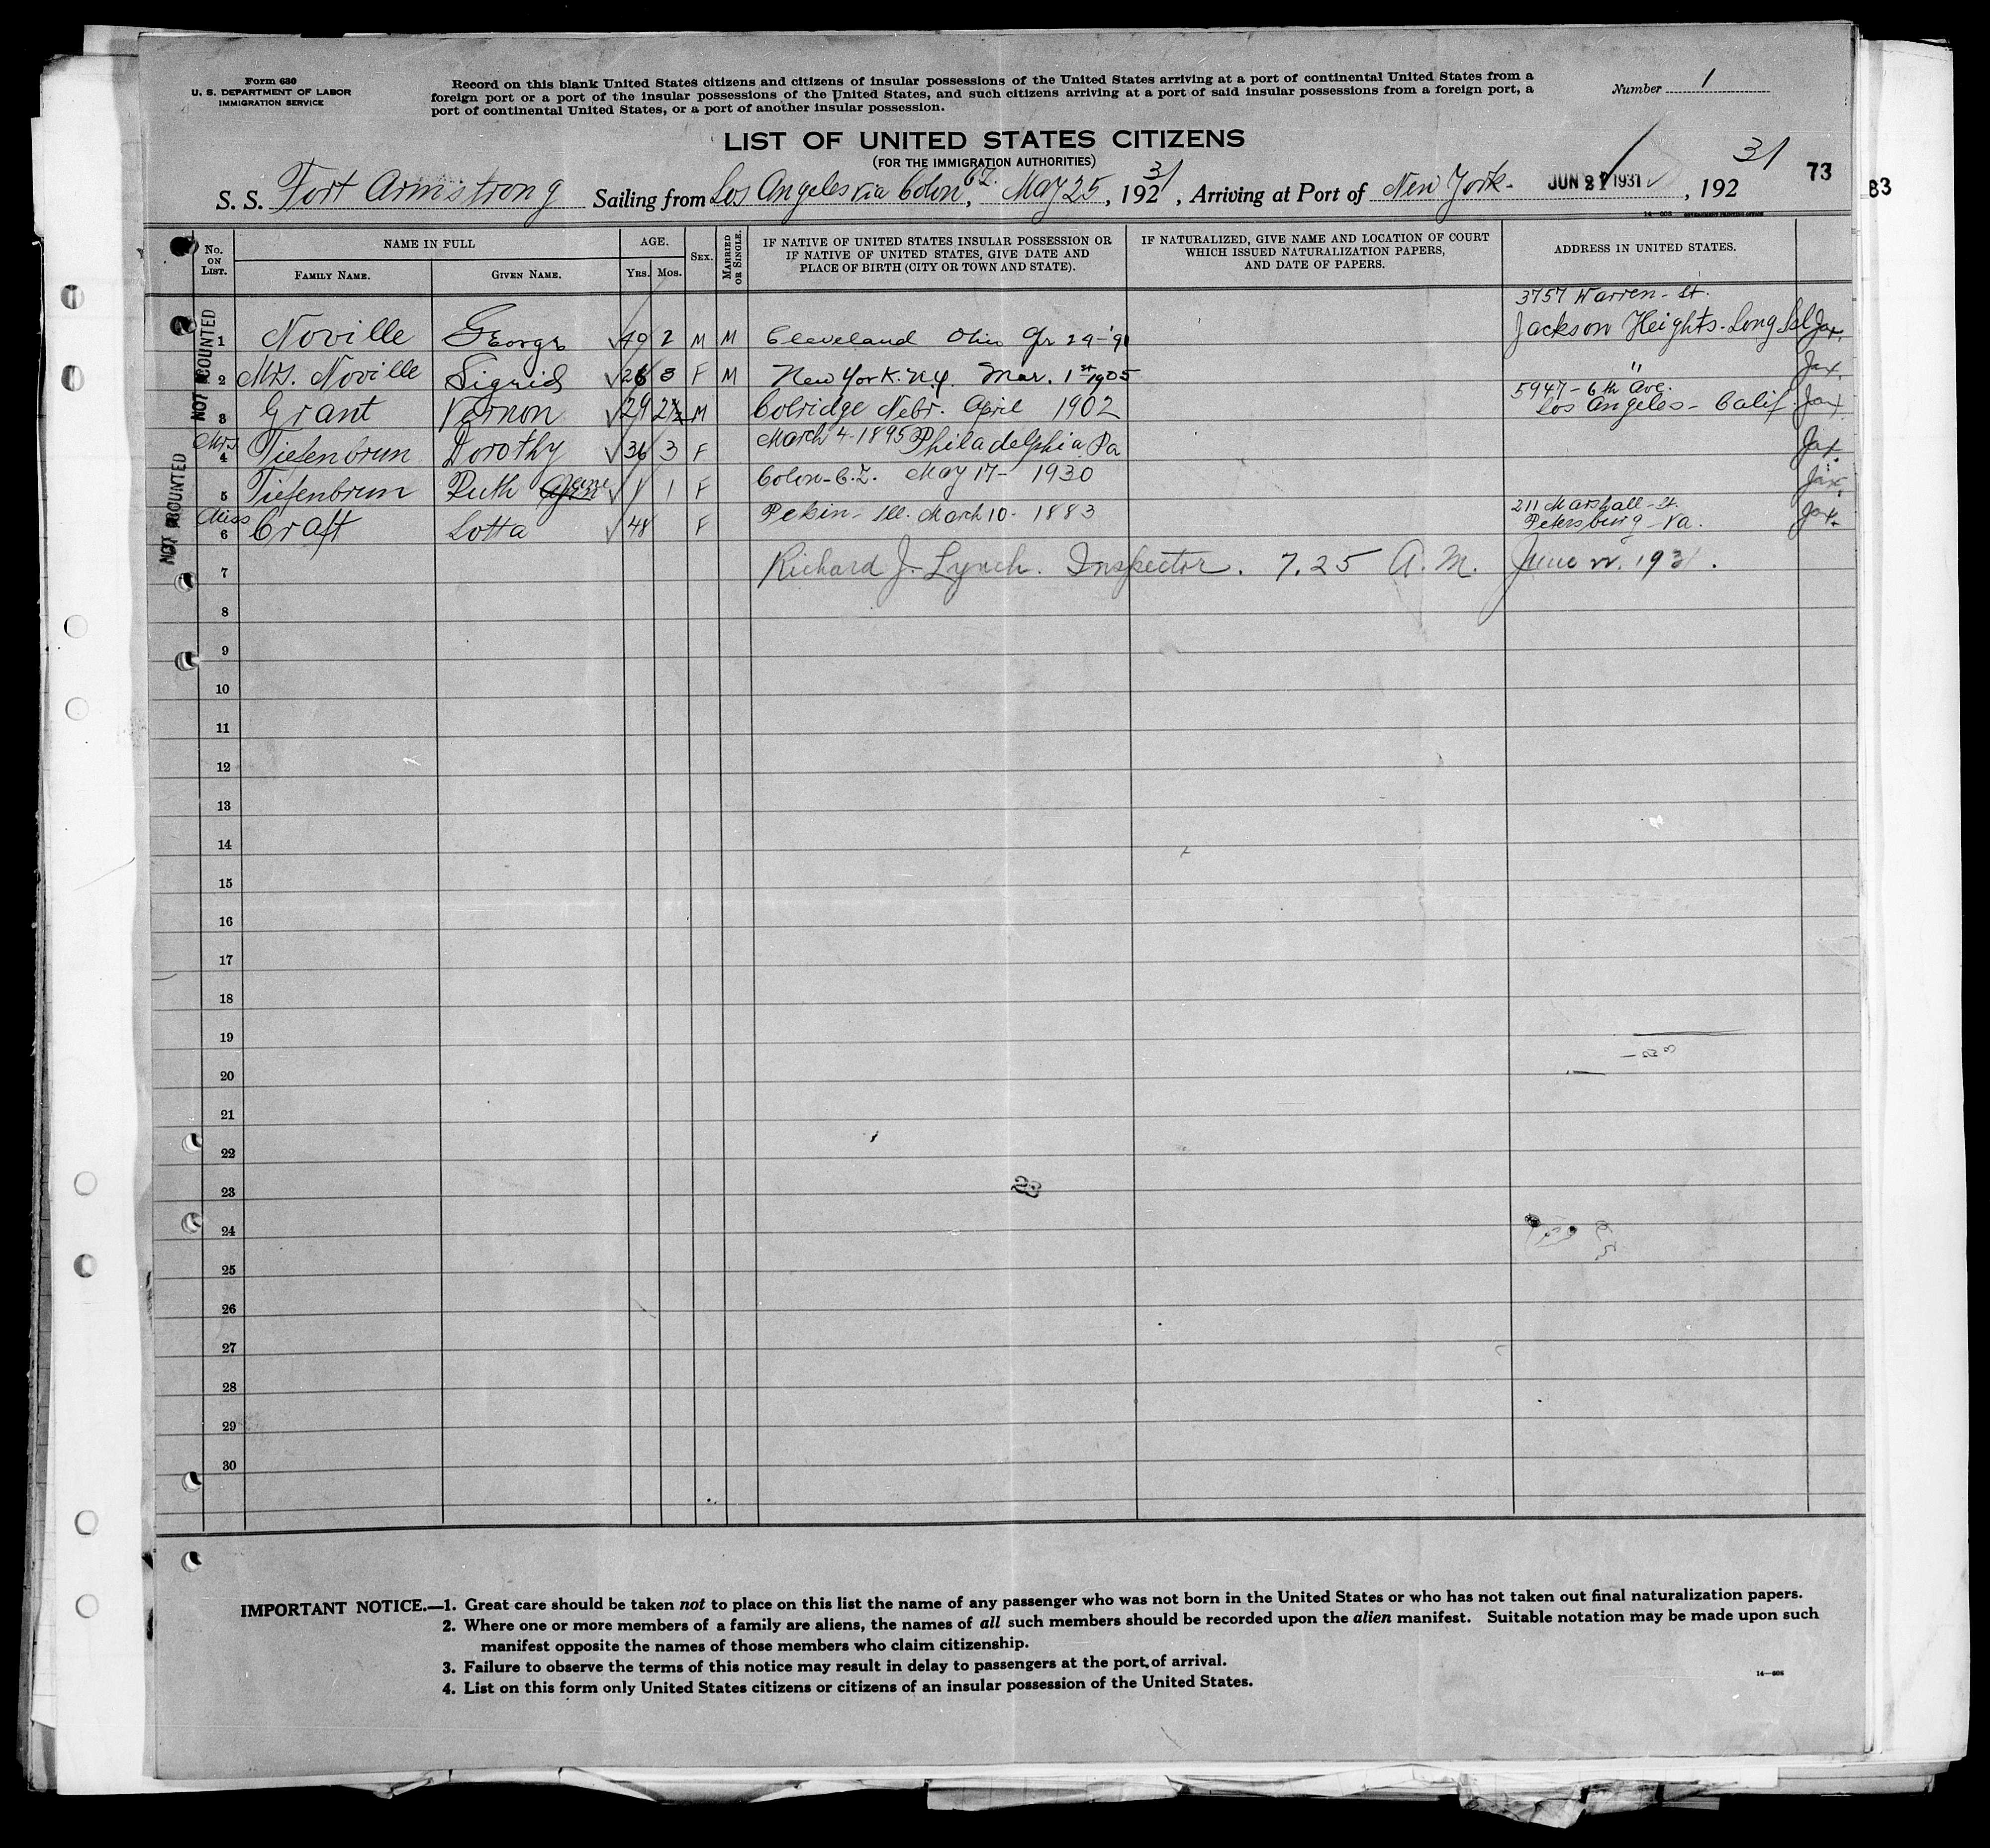 Form 630
U. S. DEPARTMENT OF LABOR
IMMIGRATION SERVICE
Record on this blank United States citizens and citizens of insular possessions of the United States arriving at a port of continental United States from a
foreign port or a port of the insular possessions of the United States, and such citizens arriving at a port of said insular possessions from a foreign port, a
port of continental United States, or a port of another insular possession.
Number 1
LIST OF UNITED STATES CITIZENS
(FOR THE IMMIGRATION AUTHORITIES)
S. S. Fort Armstrong Sailing from Los Angeles via Colon C.Z., May 25, 192 31, Arriving at Port of New York - JUN 1931, 192 31 73
83
No. ON LIST.
NAME IN FULL
FAMILY NAME.
GIVEN NAME.
AGE.
YRS. MOS.
SEX.
MARRIED OR SINGLE.
IF NATIVE OF UNITED STATES INSULAR POSSESSION OR
IF NATIVE OF UNITED STATES, GIVE DATE AND
PLACE OF BIRTH (CITY OR TOWN AND STATE).
IF NATURALIZED, GIVE NAME AND LOCATION OF COURT
WHICH ISSUED NATURALIZATION PAPERS,
AND DATE OF PAPERS.
ADDRESS IN UNITED STATES.
NOT COUNTED
NOT COUNTED
3757 Warren - St.
1 Noville George 40 2 M M Cleveland Ohio Apr 29-'91 Jackson Heights - Long Isl
2 Mrs. Noville Sigrid 26 3 F M New York. N.Y. Mar. 1st 1905 "
5947 - 6th Ave.
3 Grant Vernon 29 2½ M Colridge Nebr. April 1902 Los Angeles - Calif.
4 Mrs Tiefenbrun Dorothy 36 3 F March 4-1895 Philadelphia Pa
5 Tiefenbrun Ruth 1 1 F Colon-C.Z. May 17- 1930
211 Marshall - St.
6 Miss Craft Lotta 48 F Pekin - Ill. March 10 - 1883 Petersburg - Va.
7 Richard J. Lynch. Inspector. 7.25 A.M. June 1931.
8
9
10
11
12
13
14
15
16
17
18
19
20
21
22
23
24
25
26
27
28
29
30
IMPORTANT NOTICE.—1. Great care should be taken not to place on this list the name of any passenger who was not born in the United States or who has not taken out final naturalization papers.
2. Where one or more members of a family are aliens, the names of all such members should be recorded upon the alien manifest. Suitable notation may be made upon such
manifest opposite the names of those members who claim citizenship.
3. Failure to observe the terms of this notice may result in delay to passengers at the port of arrival.
4. List on this form only United States citizens or citizens of an insular possession of the United States.
14—608